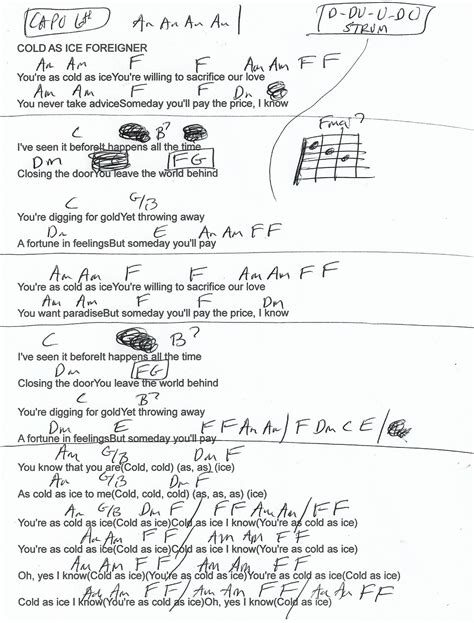 CAPO 6th Am Am Am Am D-DU-U-DU
STRUM
COLD AS ICE FOREIGNER
Am Am F F Am Am F F
You're as cold as iceYou're willing to sacrifice our love
Am Am F F Dm
You never take adviceSomeday you'll pay the price, I know
Fmaj7
C B7
I've seen it beforeIt happens all the time
Dm FG
Closing the doorYou leave the world behind
C G/B
You're digging for goldYet throwing away
Dm E Am Am F F
A fortune in feelingsBut someday you'll pay
Am Am F F Am Am F F
You're as cold as iceYou're willing to sacrifice our love
Am Am F F Dm
You want paradiseBut someday you'll pay the price, I know
C B7
I've seen it beforeIt happens all the time
Dm FG
Closing the doorYou leave the world behind
C B7
You're digging for goldYet throwing away
Dm E F F Am Am / F Dm C E /
A fortune in feelingsBut someday you'll pay
Am G/B Dm F
You know that you are(Cold, cold) (as, as) (ice)
Am G/B Dm F
As cold as ice to me(Cold, cold, cold) (as, as, as) (ice)
Am G/B Dm F / F F Am Am / F F
You're as cold as ice(Cold as ice)Cold as ice I know(You're as cold as ice)
Am Am F F Am Am F F
You're as cold as ice(Cold as ice)Cold as ice I know(You're as cold as ice)
Am Am F F Am Am F F
Oh, yes I know(Cold as ice)(You're as cold as ice)You're as cold as ice(Cold as ice)
Am Am F F / Am Am F F / Am Am F F
Cold as ice I know(You're as cold as ice)Oh, yes I know(Cold as ice)